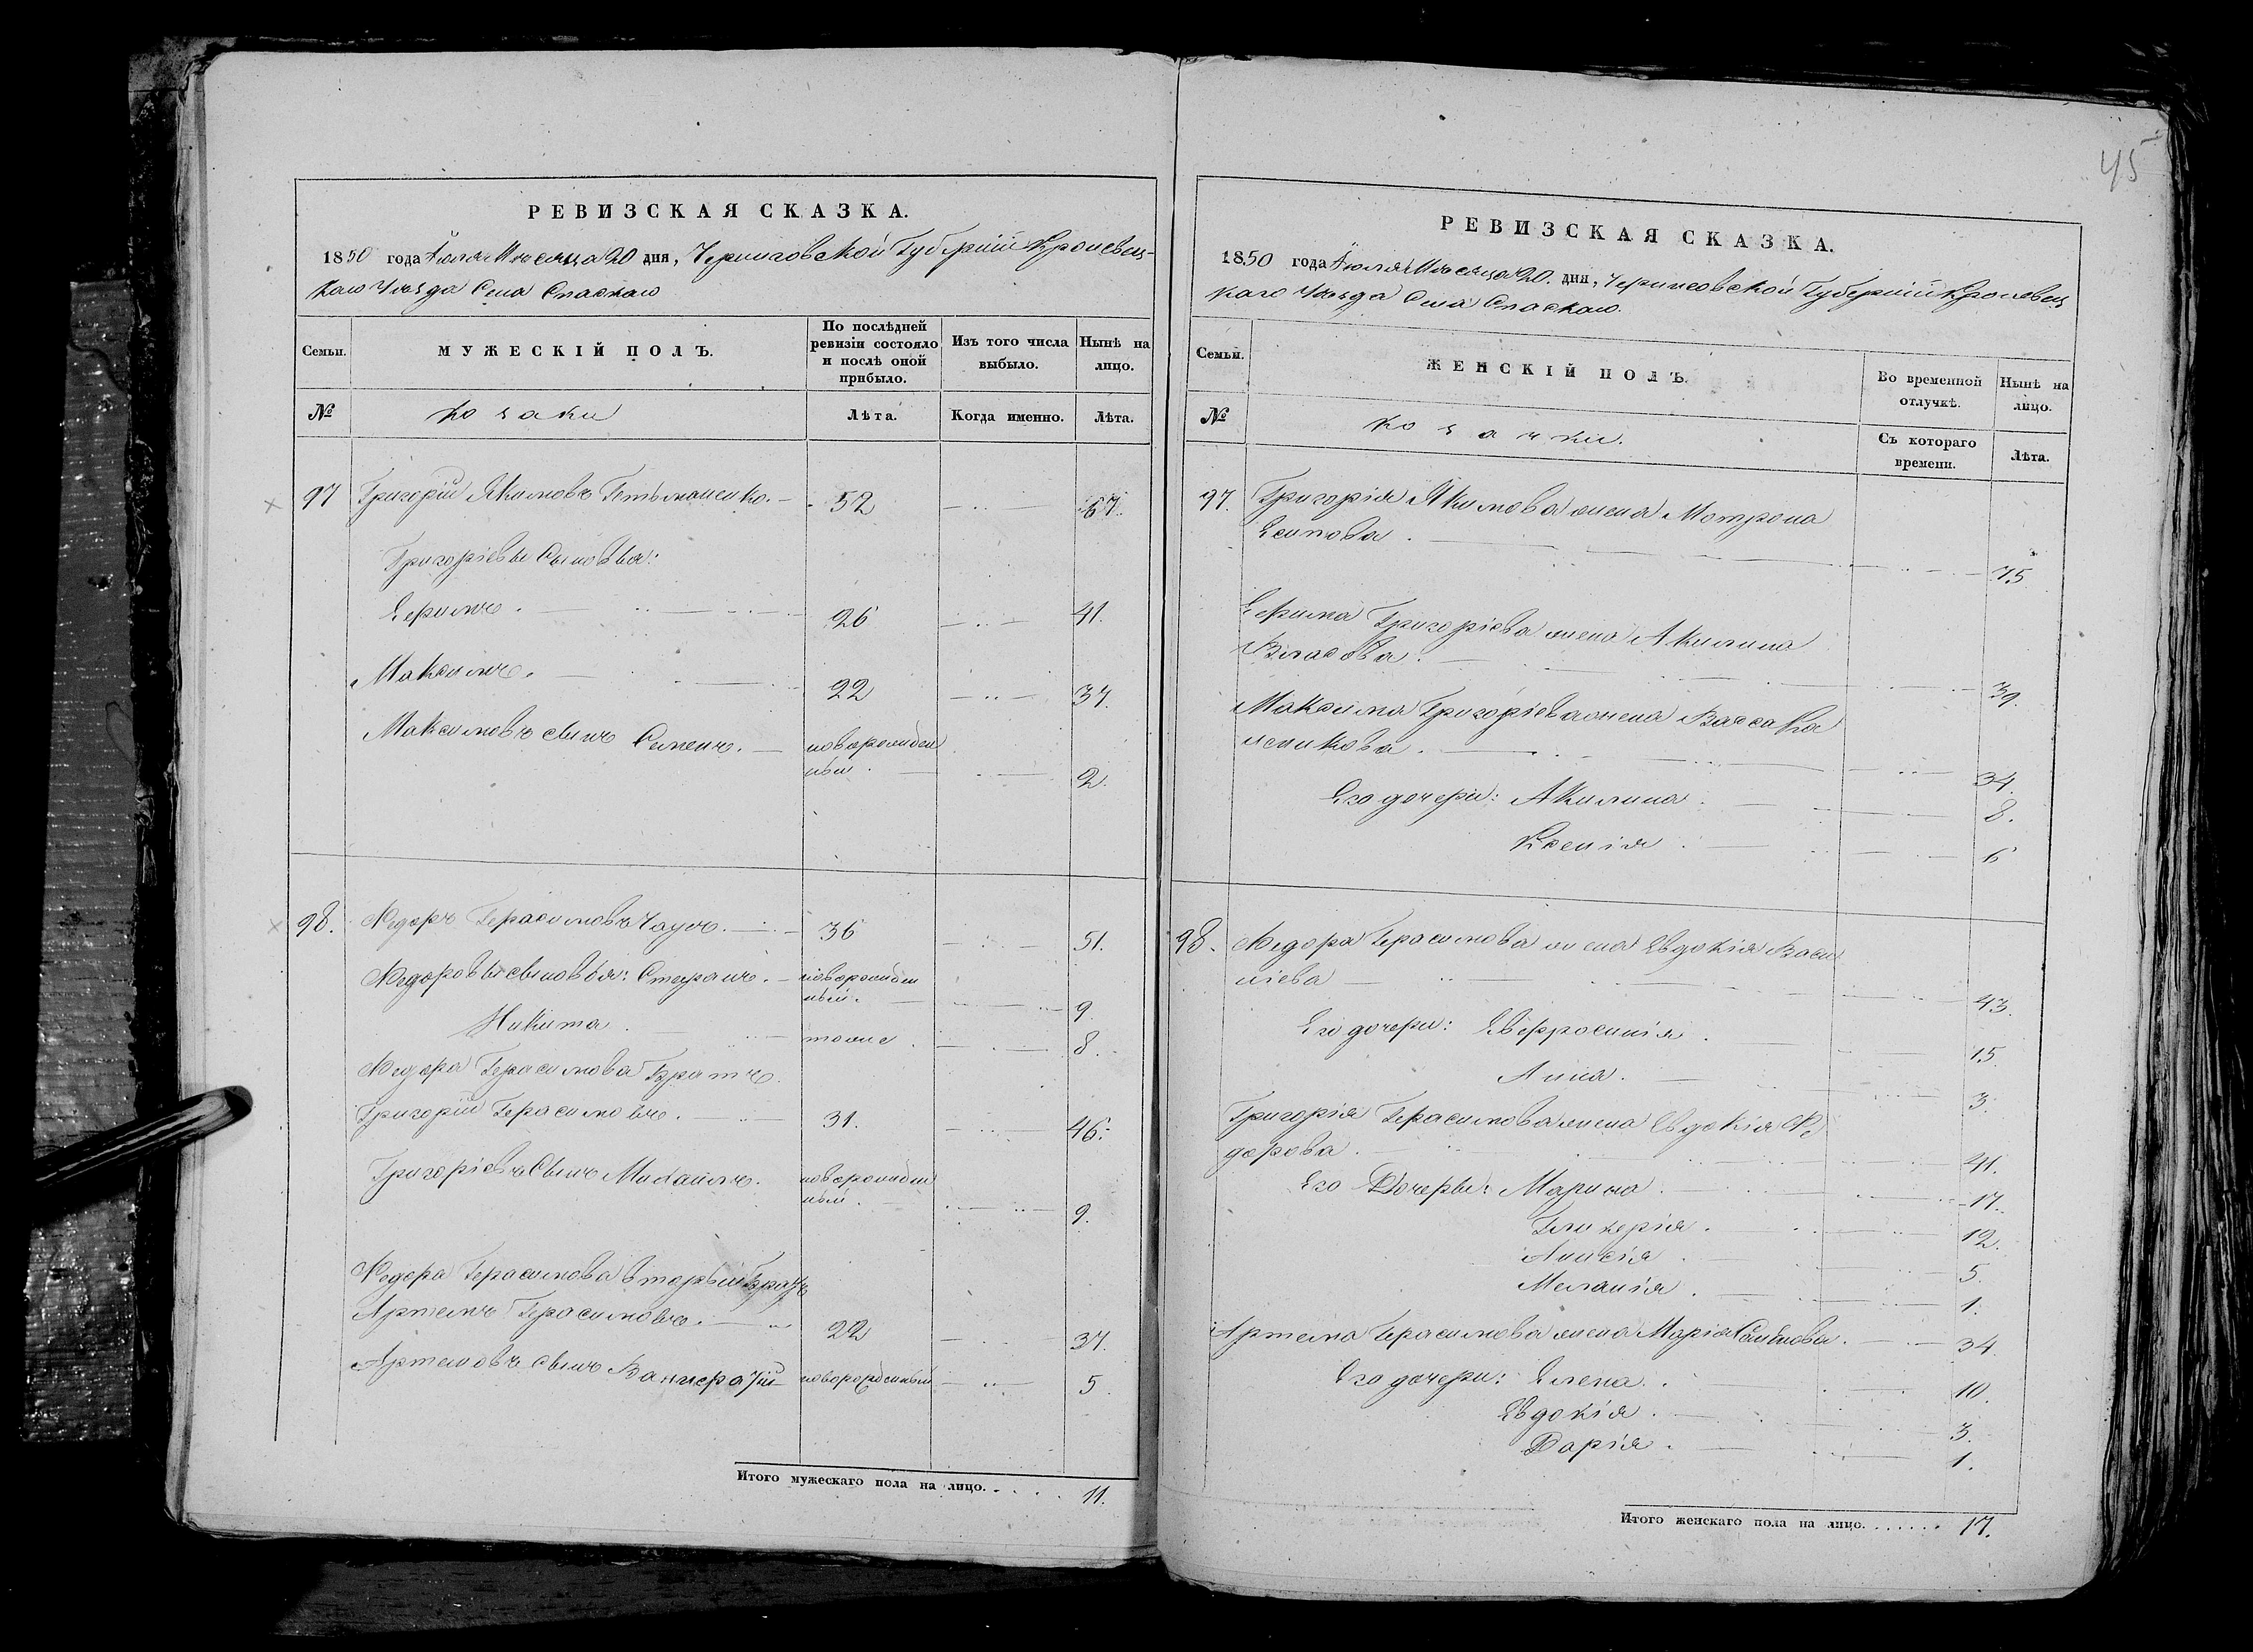 РЕВИЗСКАЯ СКАЗКА.
1850 года Июля Месяца 20 дня, Черниговской Губерніи Кролевец-
каго Уезда Села Спаскаго
Семьи.
МУЖЕСКІЙ ПОЛЪ.
По послѣдней ревизіи состояло и послѣ оной прибыло.
Изъ того числа выбыло.
Нынѣ на лицо.
№
козаки
Лѣта.
Когда именно.
Лѣта.
97 Григорій Якимовъ 52 67.
Григоріевы Сыновья:
Ефимъ. 26 41.
Максимъ. 22 37.
Максимовъ сынъ Семенъ. новорожден
ный. 2.
98. Федоръ Герасимовъ Чаусъ. 36 51.
Федоровы сыновья: Стефанъ. новорожден
ный. 9.
Никита. тоже. 8.
Федора Герасимова Братъ.
Григорій Герасимовъ. 31. 46.
Григоріевъ Сынъ Михаилъ. новорожден
ный. 9.
Федора Герасимова вторый братъ
Артемъ Герасимовъ. 22 37.
Артемовъ Сынъ новорожденный 5
Итого мужескаго пола на лицо. 11.
45
РЕВИЗСКАЯ СКАЗКА.
1850 года Июля Месяца 20. дня, Черниговской Губерніи Кролевец
каго Уезда Села Спаскаго.
Семьи.
ЖЕНСКІЙ ПОЛЪ.
Во временной отлучкѣ.
Нынѣ на лицо.
№
козачки.
Съ котораго времени.
Лѣта.
97. Григорія Якимова жена Мотрона
Есипова. 75
Ефима Григоріева жена Акилина
Власова. 39.
Максима Григоріева жена Васса Ка
леникова. 34.
Его дочери: Акилина. 8.
Ксенія. 6
98. Федора Герасимова жена Евдокія Васи
ліева 43.
Его дочери: Евфросинія. 15.
Анна. 3.
Григорія Герасимова жена Евдокія Фе
дорова. 41.
Его Дочери: Марина. 17.
Гликерія. 12.
Анисія. 5.
Меланія. 1.
Артема Герасимова жена Марія 34
Его дочери: Елена. 10.
Евдокія. 3.
Дарія. 1.
Итого женскаго пола на лицо. 17.